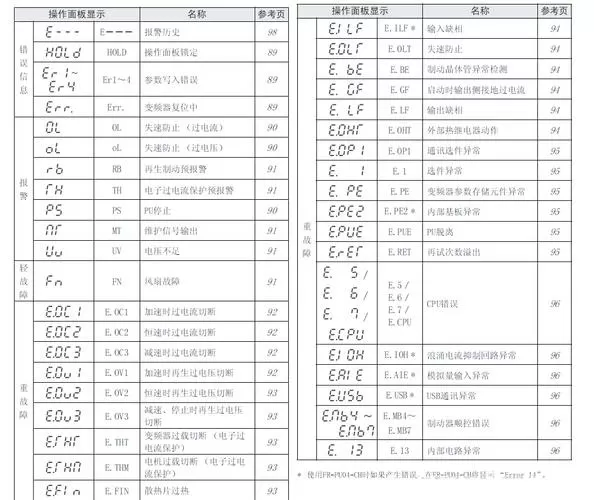 操作面板显示 名称 参考页
错误信息
E--- E--- 报警历史 98
HOLd HOLD 操作面板锁定 89
Er1~ Er4 Er1~4 参数写入错误 89
Err. Err. 变频器复位中 89
报警
OL OL 失速防止（过电流） 90
oL oL 失速防止（过电压） 90
rb RB 再生制动预报警 91
TH TH 电子过电流保护预报警 91
PS PS PU停止 90
MT MT 维护信号输出 91
Uv UV 电压不足 91
轻故障
Fn FN 风扇故障 91
重故障
E.OC1 E.OC1 加速时过电流切断 92
E.OC2 E.OC2 恒速时过电流切断 92
E.OC3 E.OC3 减速时过电流切断 92
E.Ov1 E.OV1 加速时再生过电压切断 92
E.Ov2 E.OV2 恒速时再生过电压切断 93
E.Ov3 E.OV3 减速、停止时再生过电压切断 93
E.THT E.THT 变频器过载切断（电子过电流保护） 93
E.THM E.THM 电机过载切断（电子过电流保护） 93
E.FIn E.FIN 散热片过热 93
操作面板显示 名称 参考页
重故障
E.ILF E.ILF* 输入缺相 94
E.OLT E.OLT 失速防止 94
E. bE E.BE 制动晶体管异常检测 94
E. GF E.GF 启动时输出侧接地过电流 94
E. LF E.LF 输出缺相 94
E.OHT E.OHT 外部热继电器动作 94
E.OP1 E.OP1 通讯选件异常 95
E. 1 E.1 选件异常 95
E. PE E.PE 变频器参数存储元件异常 95
E.PE2 E.PE2* 内部基板异常 95
E.PUE E.PUE PU脱离 95
E.rET E.RET 再试次数溢出 95
E. 5 / E. 6 / E. 7 / E.CPU E.5 / E.6 / E.7 / E.CPU CPU错误 96
E.IOH E.IOH* 浪涌电流抑制回路异常 96
E.AIE E.AIE* 模拟量输入异常 96
E.USb E.USB* USB通讯异常 96
E.Mb4~ E.Mb7 E.MB4~ E.MB7 制动器顺控错误 96
E. 13 E.13 内部电路异常 96
* 使用FR-PU04-CH时如果产生错误，在FR-PU04-CH将显示 “Error 14”。